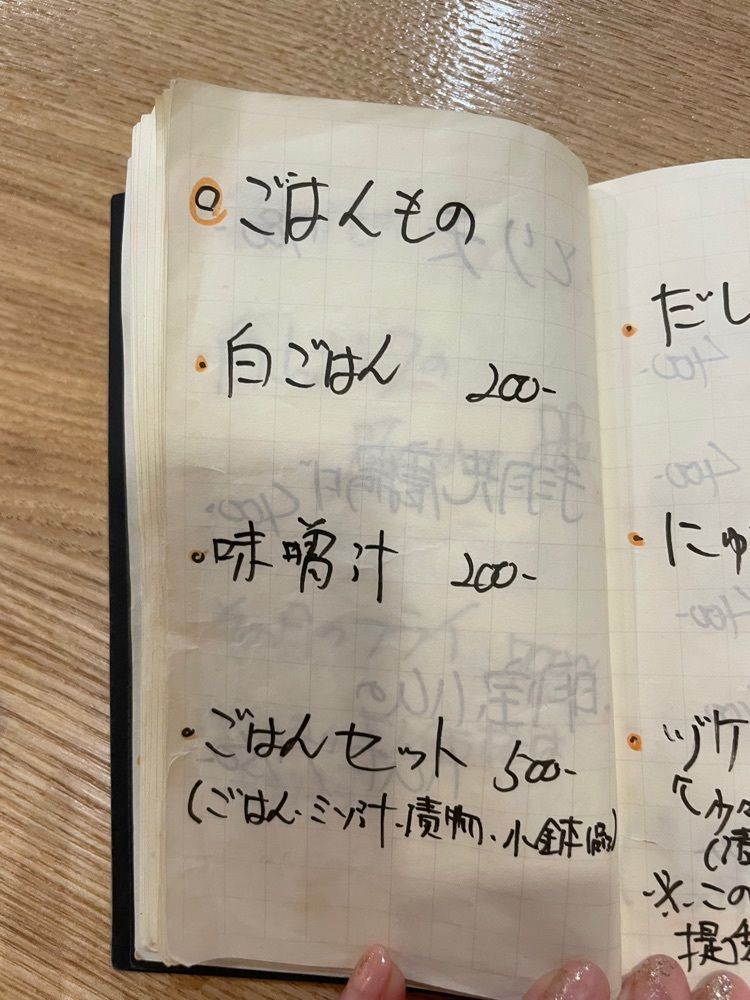 ごはんもの
・白ごはん 200-
・味噌汁 200-
・ごはんセット 500-
(ごはん・ミソ汁・漬物・小鉢
・だし
・にゅ
・ヅケ
※この
提供